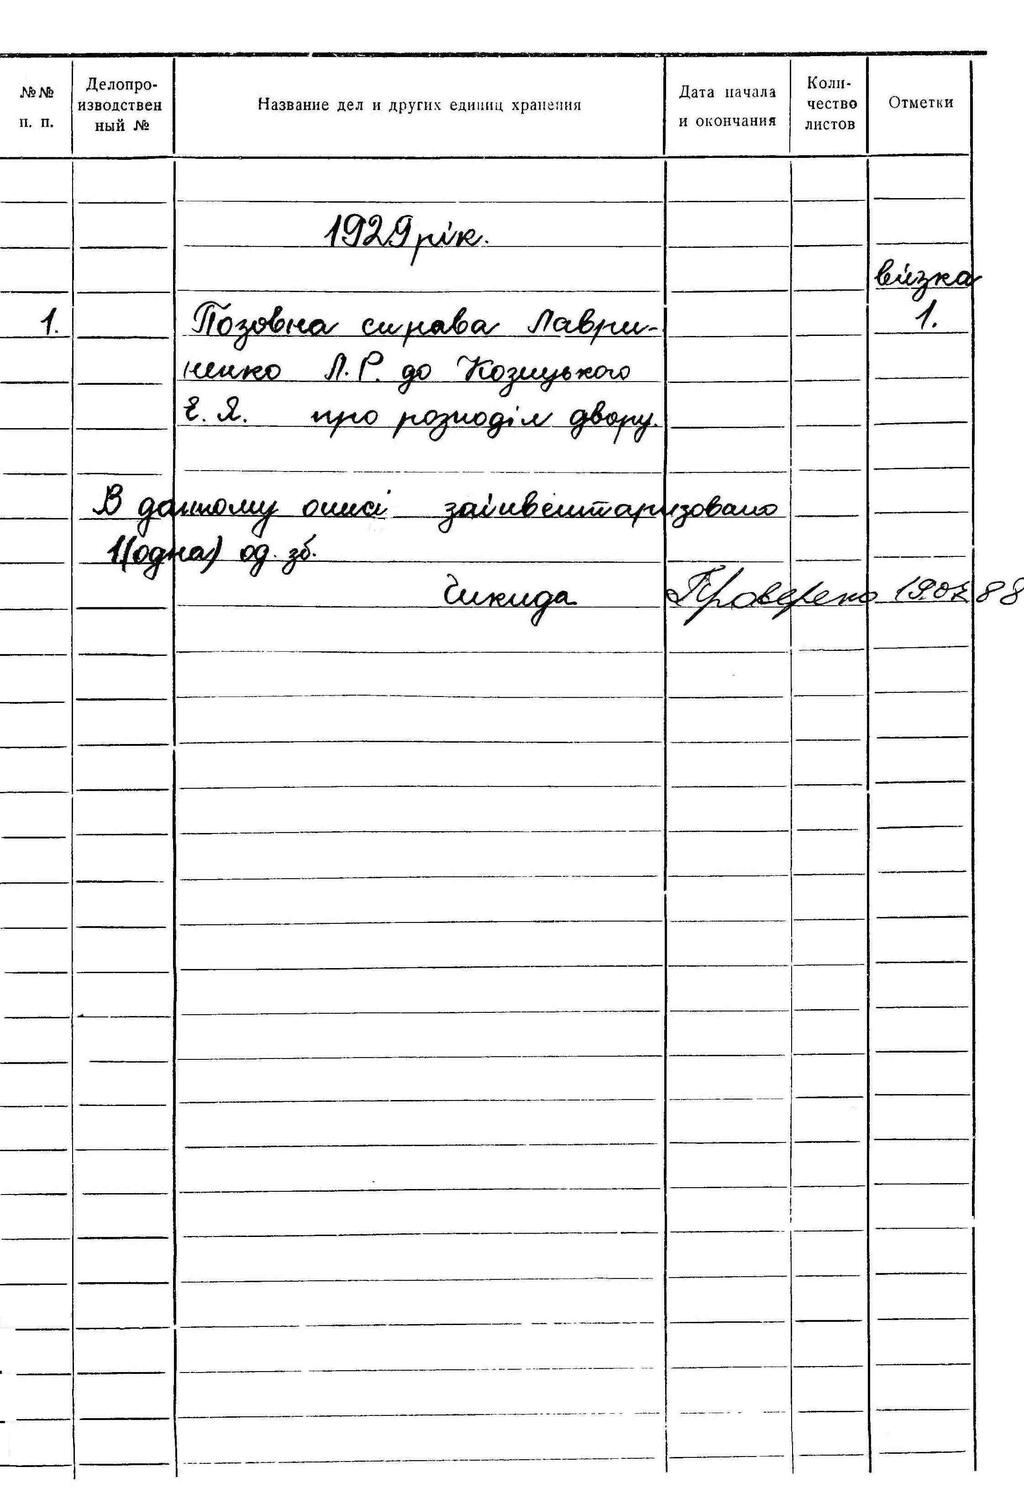 №№ п. п.
Делопро-
изводствен
ный №
Название дел и других единиц хранения
Дата начала
и окончания
Коли-
чество
листов
Отметки
1929 рік.
вйзка
1. Позовна справа Лаври- 1.
ненко Л. Р. до Козицького
Є. Я. про розподіл двору.
В данному описі заінвентаризовано
1 (одна) од. зб.
Чикида Проверено 88